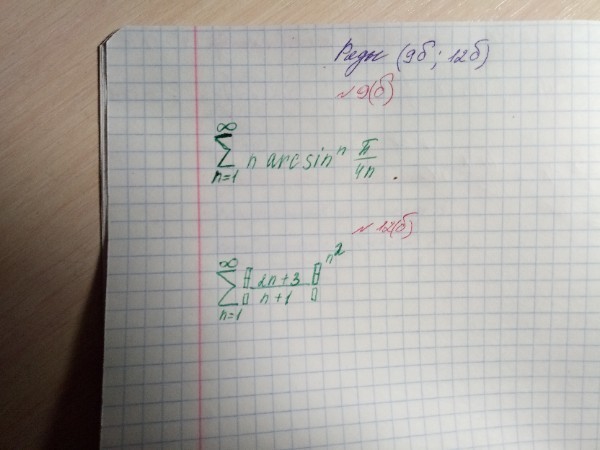 Ряды (9б; 12б)
№9(б)
∞
∑ n arcsinⁿ π/4n .
n=1
№12(б)
∞
∑ [2n+3 / n+1]^n²
n=1